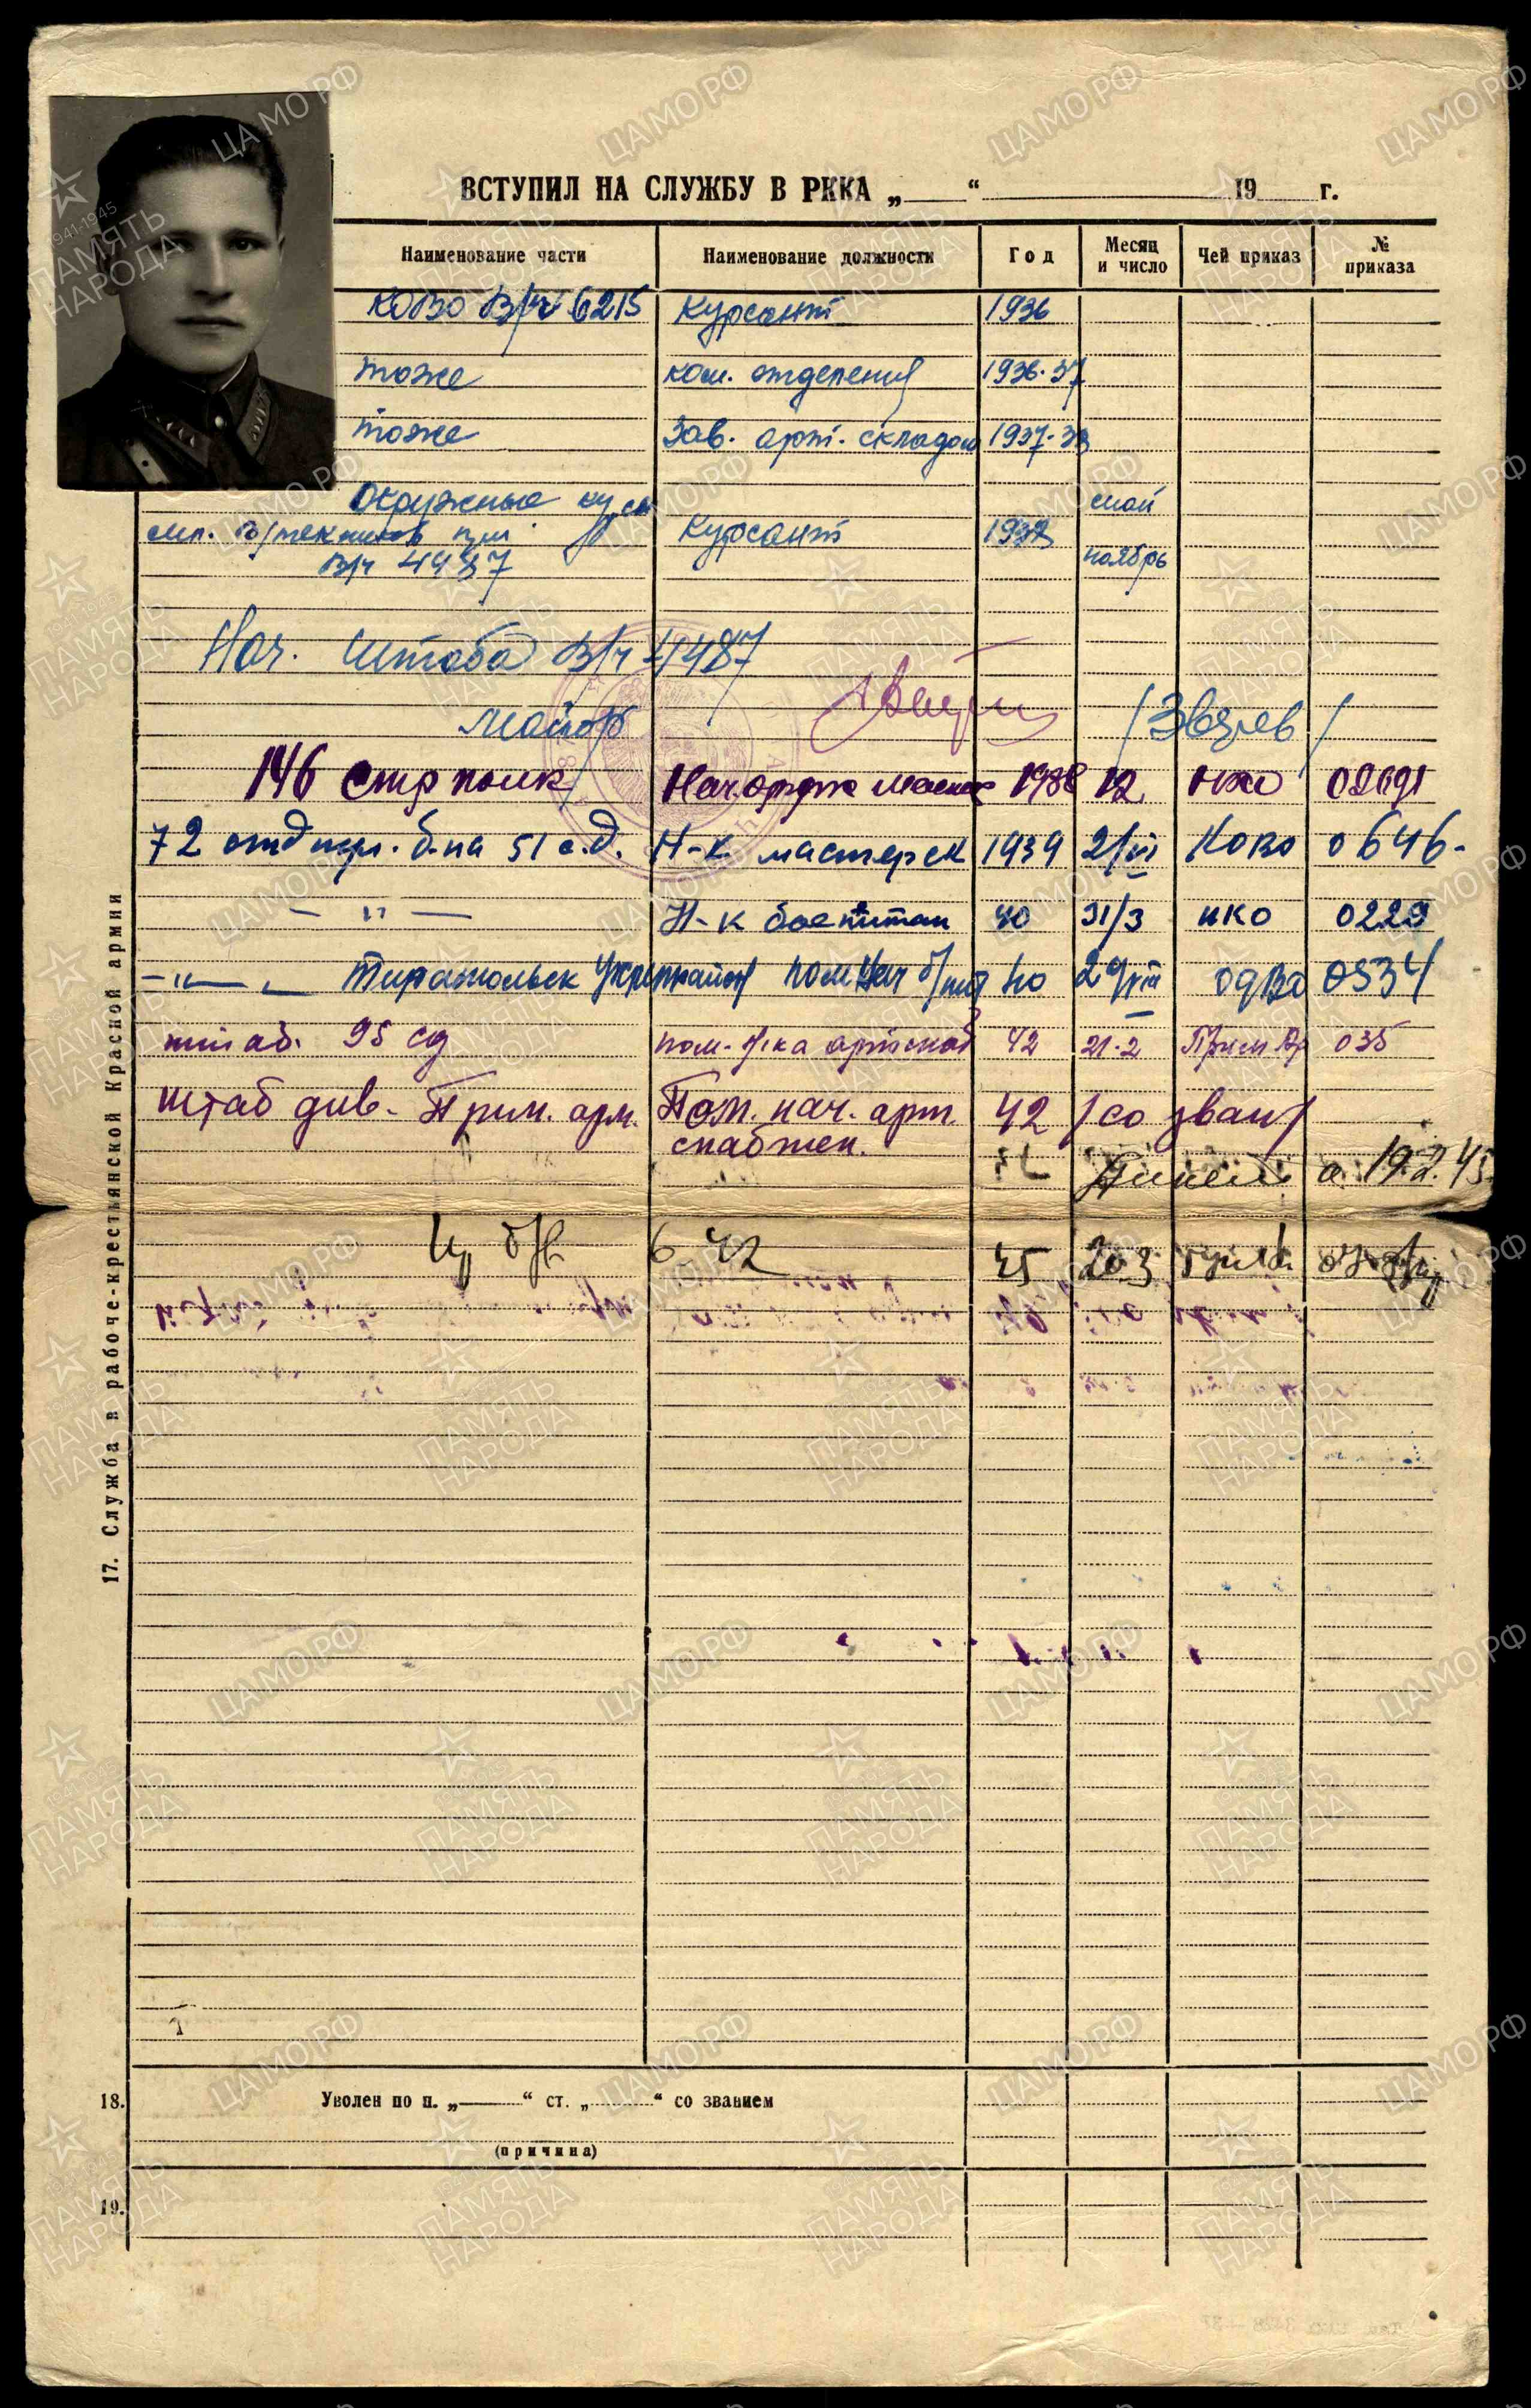 ВСТУПИЛ НА СЛУЖБУ В РККА „ “ 19 г.
Наименование части Наименование должности Год Месяц и число Чей приказ № приказа
КОВО В/ч 6215 Курсант 1936
тоже ком. отделения 1936-37
тоже Зав. арт. складом 1937-38
Окружные курсы май
мл. в/техников при Курсант 1938
В/ч 4487 ноябрь
Нач. Штаба В/ч 4487
Майор /Звягев/
146 стр полк 1938 12 НКО 02691
72 отд пул. б-на 51 с.д. Н-к мастерск 1939 21/VI КОВО 0646-
— " — Н-к боепитан 40 31/3 НКО 0229
— " — Тираспольск Укрепрайон пом Нач б/пит 40 29/VIII ОдВО 0534
штаб. 95 сд пом. н-ка артснаб 42 21.2 Прим Ар 035
штаб див. Прим. арм. Пом. нач. арт. 42 /со зван/
снабжен.
19.2.45
45 20.3
17. Служба в рабоче-крестьянской Красной армии
18. Уволен по п. „ “ ст. „ “ со званием
(причина)
19.
ЦАМО РФ
1941-1945
ПАМЯТЬ
НАРОДА